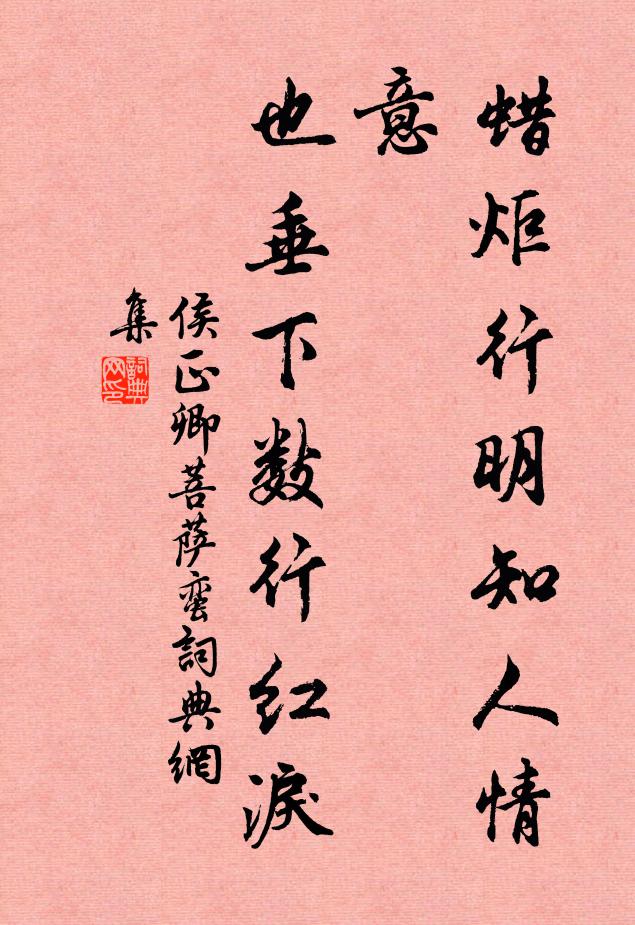 蜡炬行明知人情
意
也垂下数行红淚
侯正卿菩萨蛮詞典網
集
詞典
网印